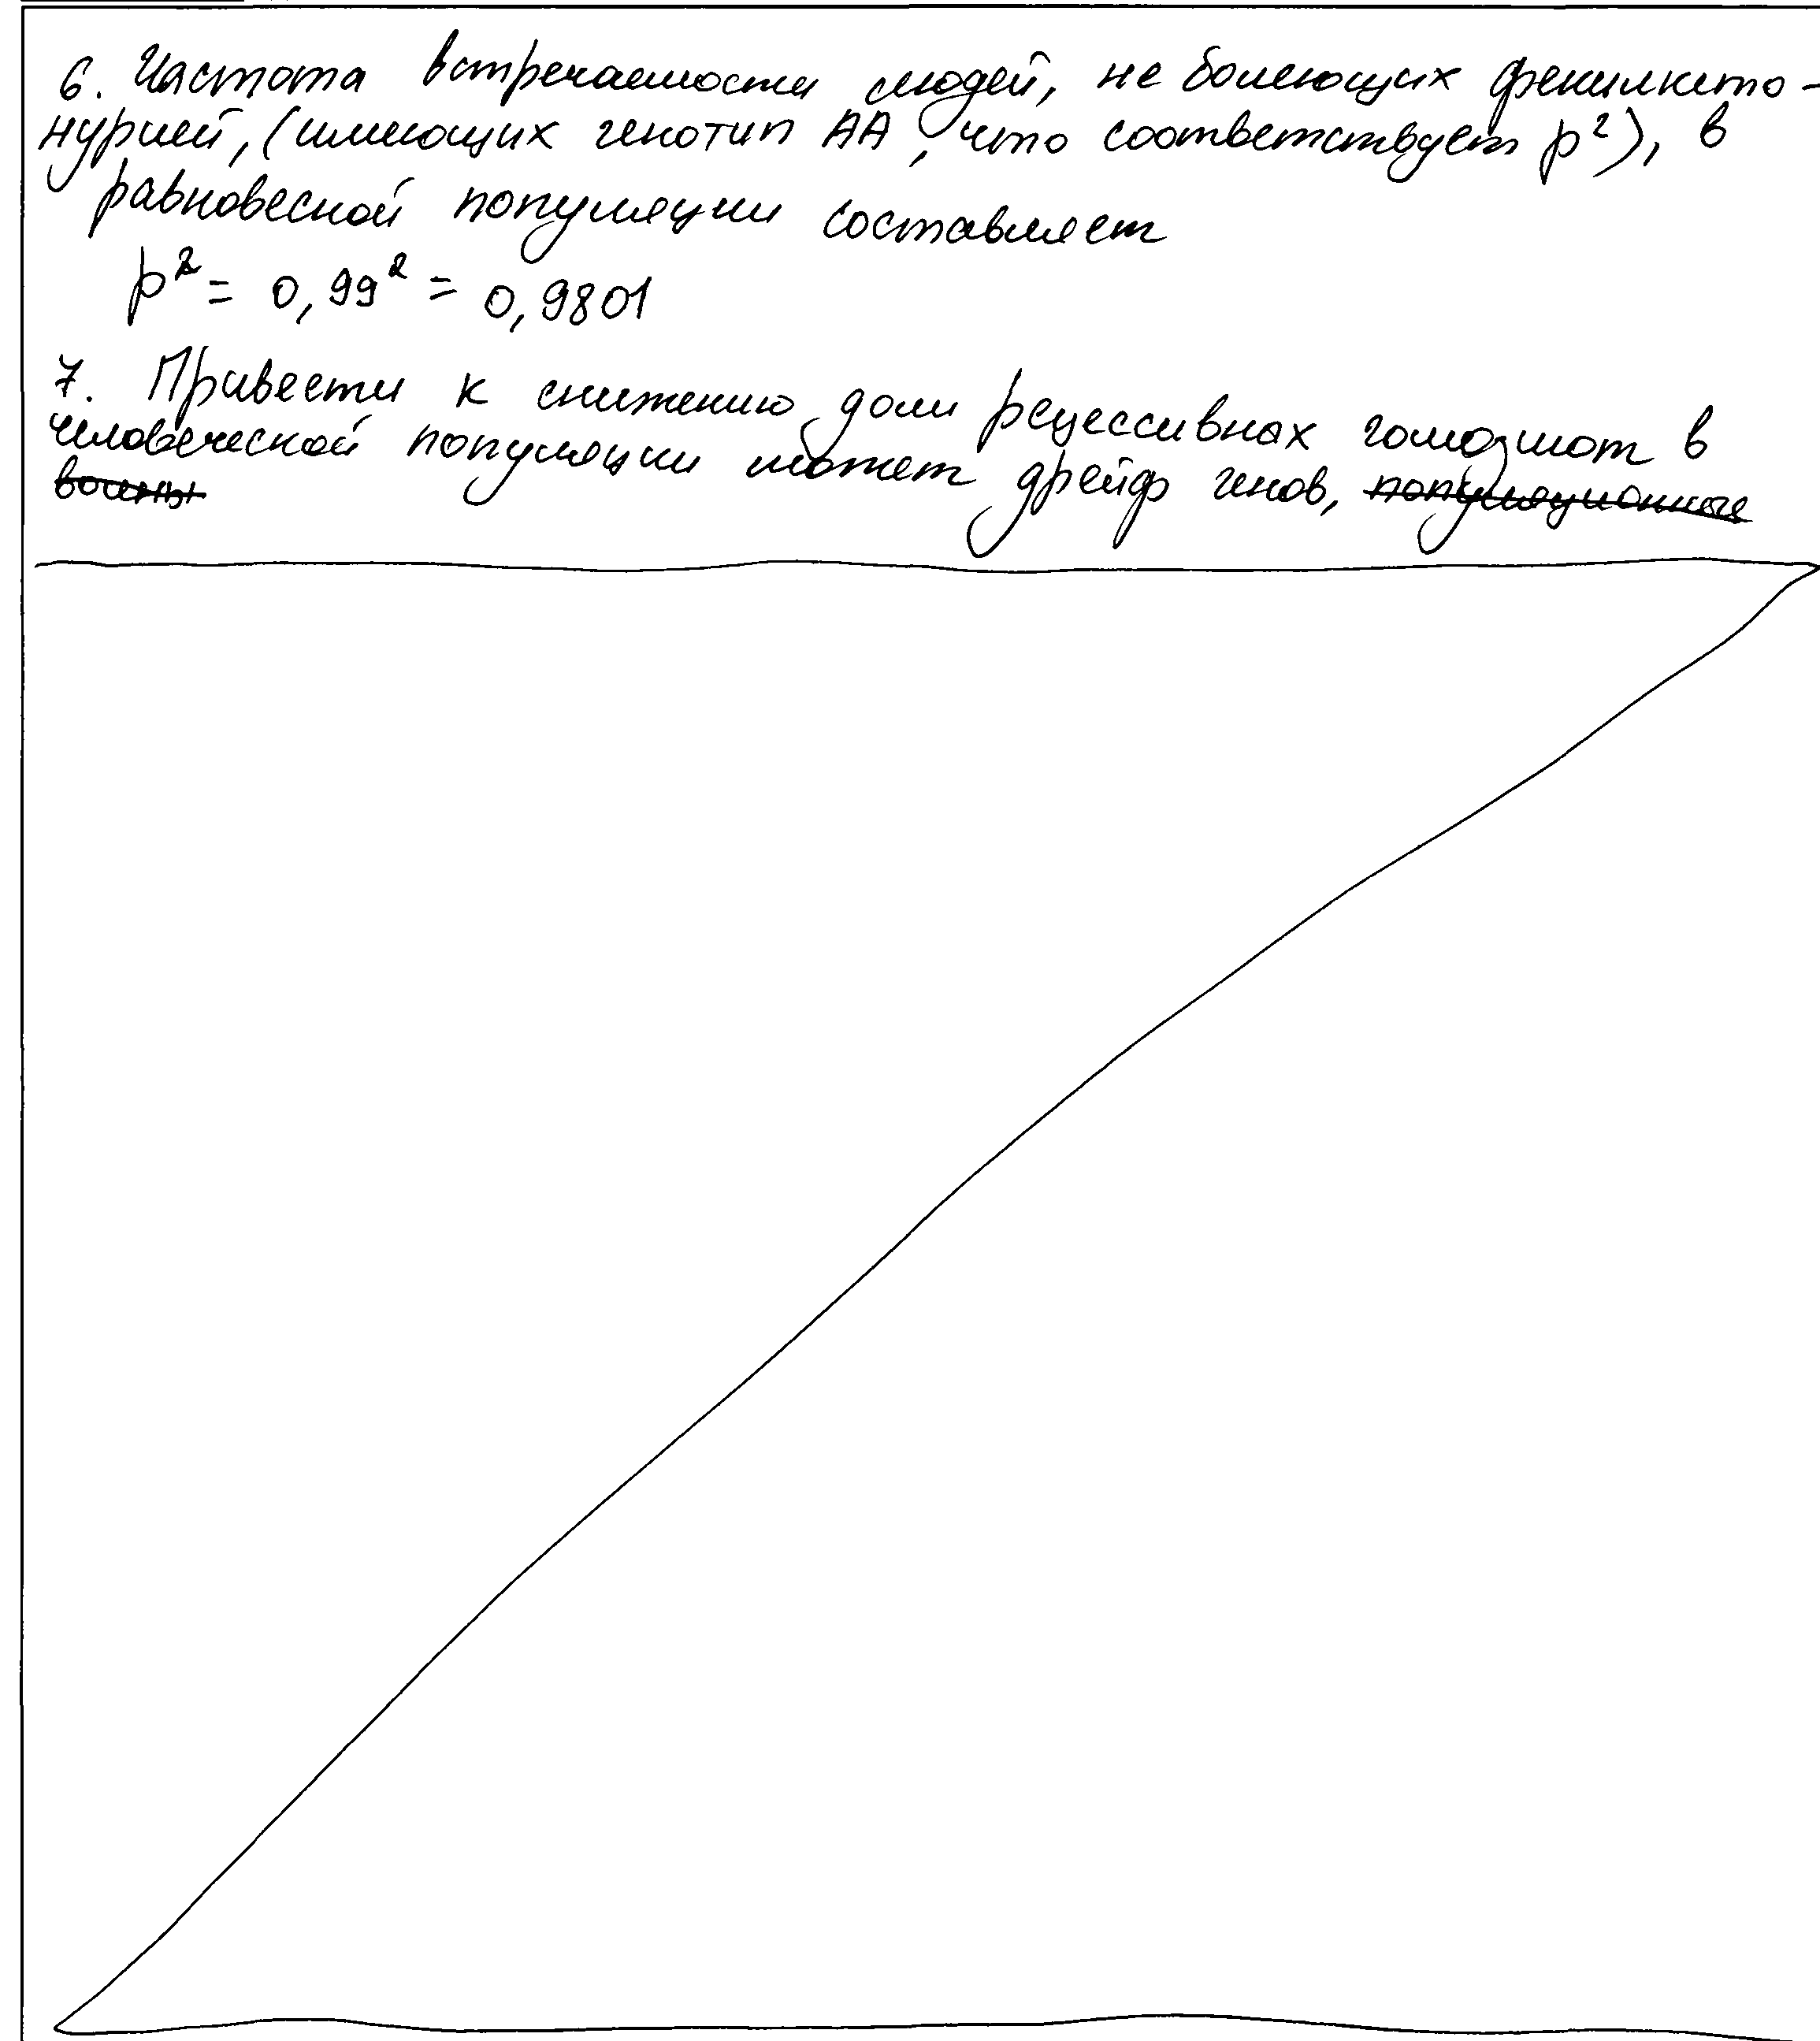 6. Частота встречаемости людей, не болеющих фенилкето-
нурией, (имеющих генотип АА, что соответствует p²), в
равновесной популяции составляет
p² = 0,99² = 0,9801
7. Привести к снижению доли рецессивнах гомозигот в
человеческой популяции может дрейф генов, популяционные
войны